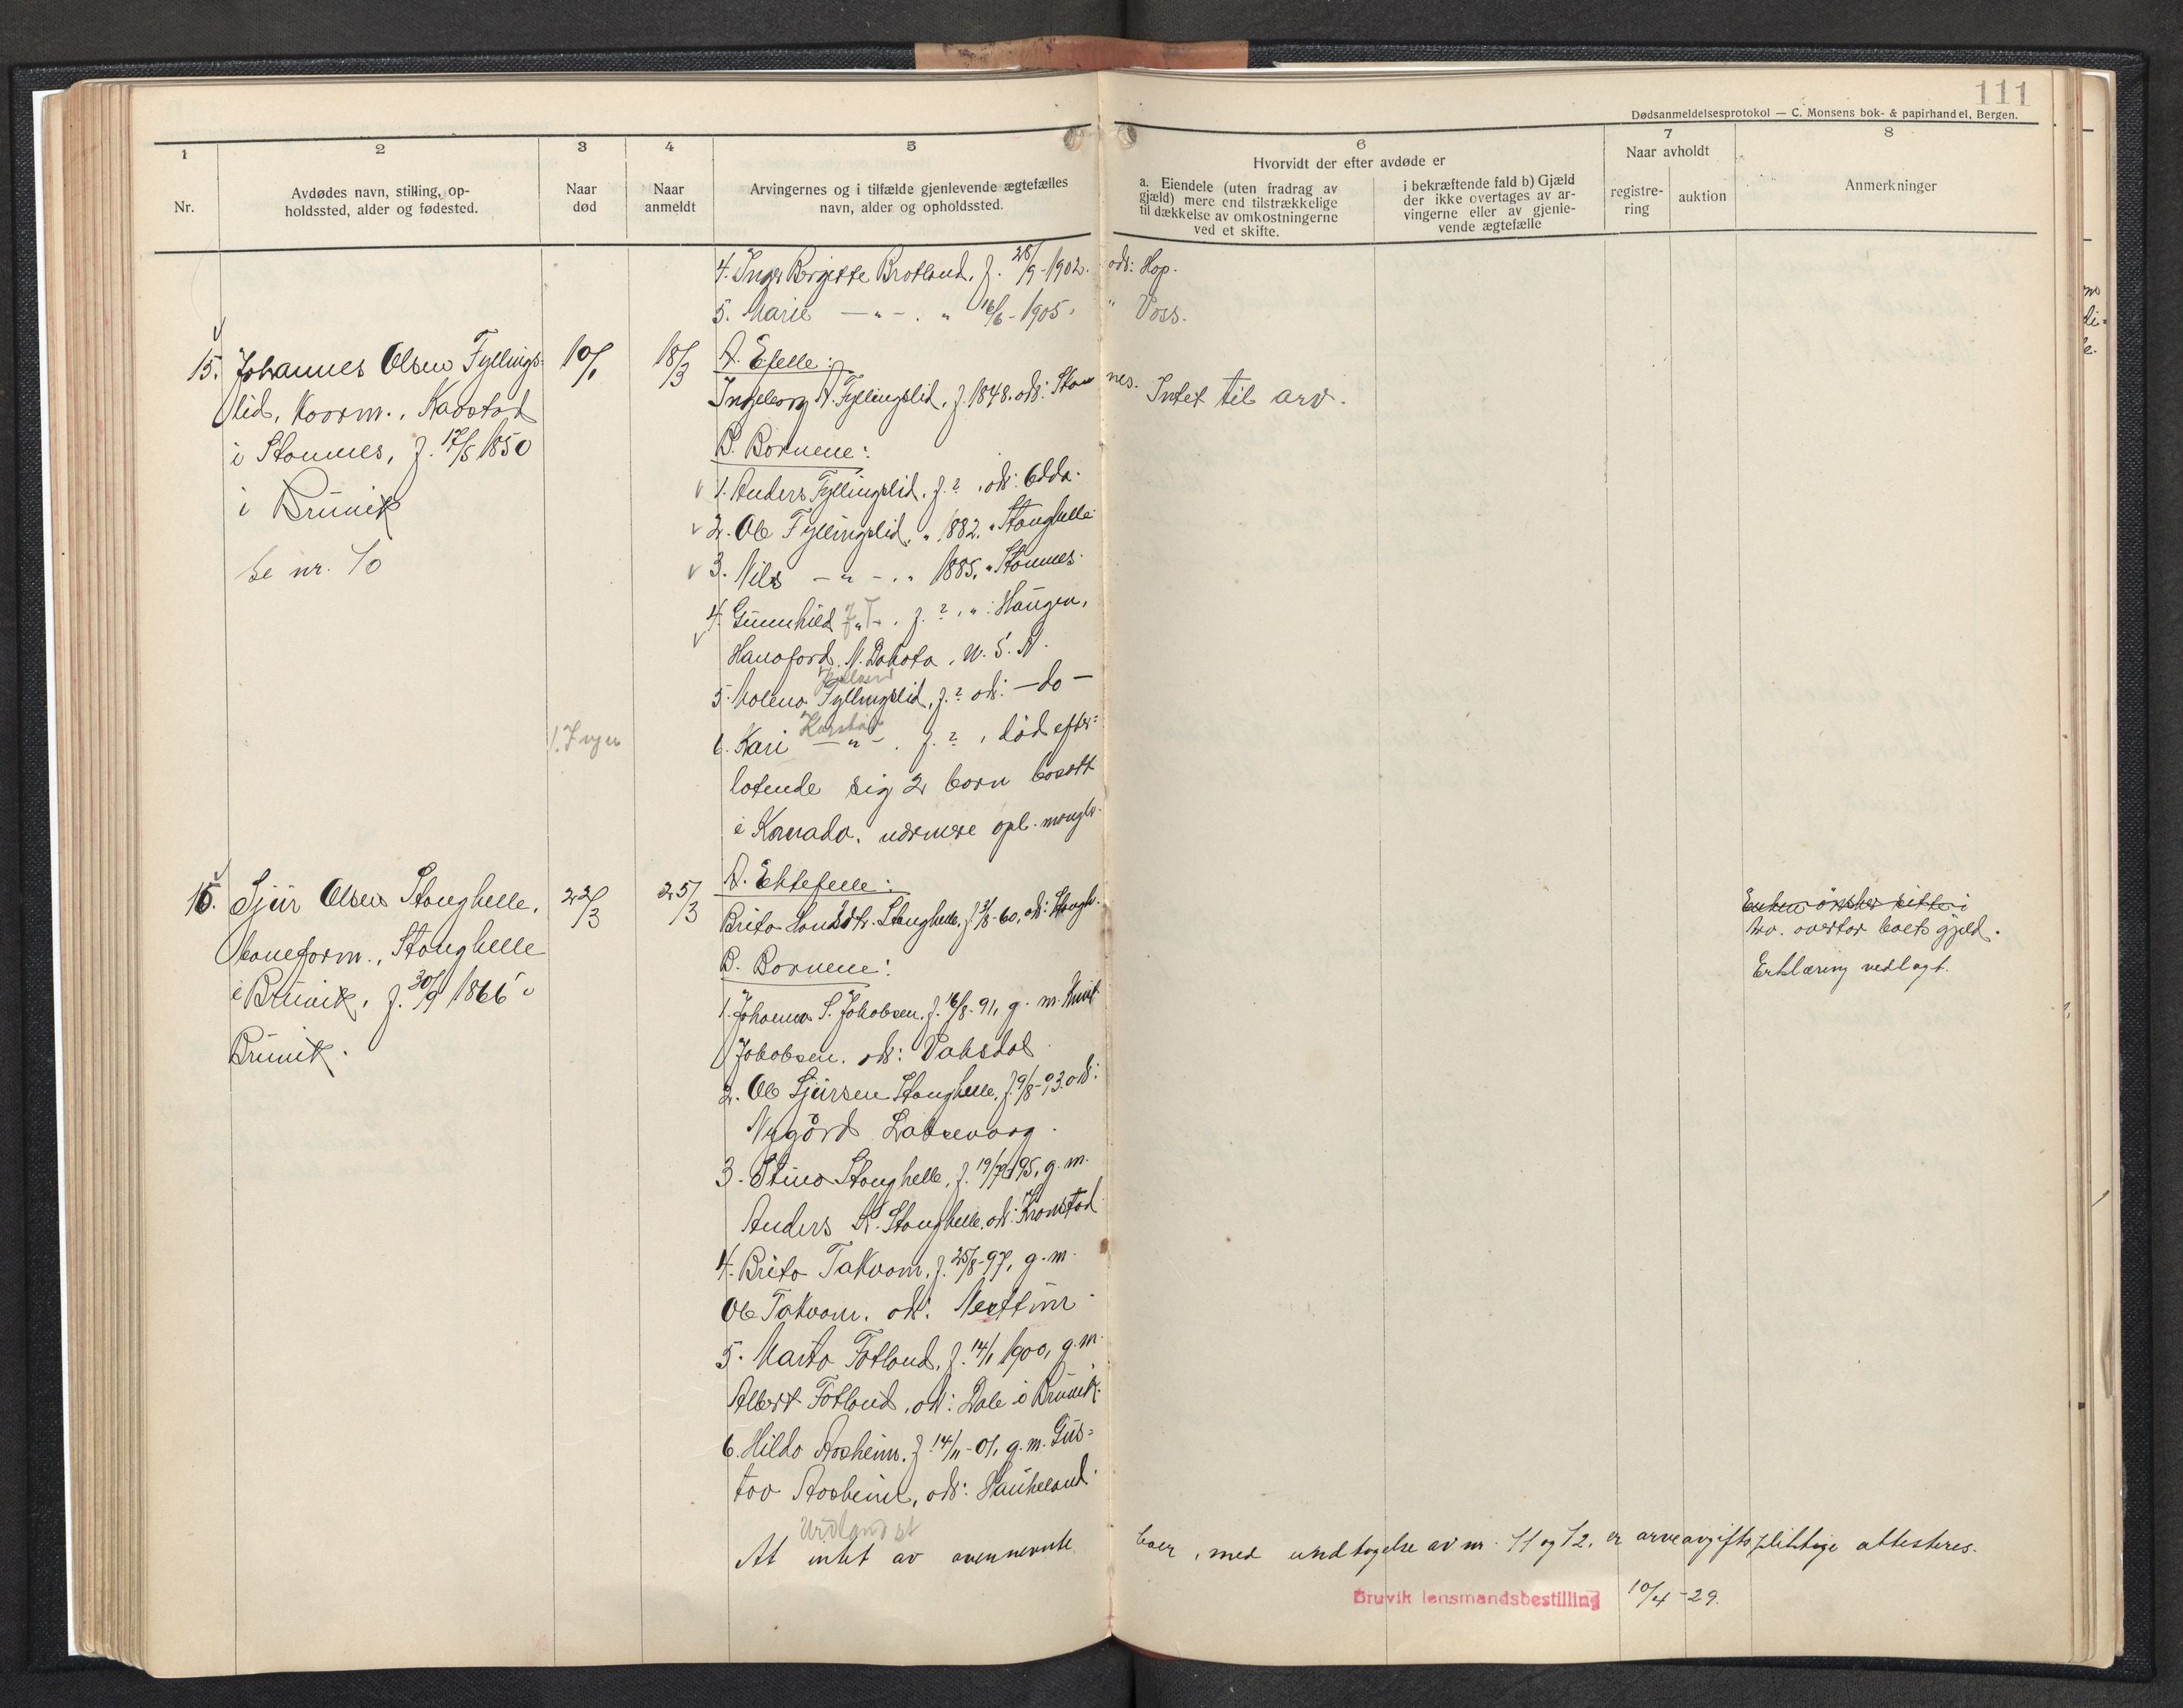 111
Dødsanmeldelsesprotokol — C. Monsens bok- & papirhandel, Bergen.
1
Nr.
2
Avdødes navn, stilling, op-
holdssted, alder og fødested.
3
Naar
død
4
Naar
anmeldt
5
Arvingernes og i tilfælde gjenlevende ægtefælles
navn, alder og opholdssted.
6
Hvorvidt der efter avdøde er
a. Eiendele (uten fradrag av
gjæld) mere end tilstrækkelige
til dækkelse av omkostningerne
ved et skifte.
i bekræftende fald b) Gjæld
der ikke overtages av ar-
vingerne eller av gjenle-
vende ægtefælle
7
Naar avholdt
registre-
ring
auktion
8
Anmerkninger
4. Inger Bergitte Brotland, f. 28/9-1902. ods: Hop.
5. Marie —"—. " 16/6-1905. " Voss.
15. Johannes Olsen Fyllings-
lid, Kaarm., Kaastad
i Stamnes, f. 17/5 1850
i Bruvik
Se nr. 10
10/1
18/3
A. Efelle:
Ingeborg A. Fyllingslid, f. 1848. ods: Stam nes.
Intet til arv.
B. Barnene:
1. Anders Fyllingslid, f. ?, ods: Odda.
2. Ole Fyllingslid, " 1882. " Stanghelle
3. Nils —"—. " 1885. " Stamnes.
4. Gunnhild —"—. f. ?, ": Haugen,
Hanaford, N. Dakota, U. S. A.
5. Malena Fyllingslid, f. ? ods: —do—
6. Kari —"—. f. ?, død efter-
1. Inger
latende sig 2 barn bosatt
i Kanada. nærmere opl. mangler.
16. Sjur Olsen Stanghelle,
baneform., Stanghelle
i Bruvik, f. 30/9 1866 i
Bruvik.
22/3
25/3
A. Ektefelle:
Brita Stanghelle, f. 3/8-60, ods: Stangh.
B. Barnene:
1. Johanna S. Jakobsen, f. 16/8-91, g. m. Knut
Jakobsen. ods: Vaksdal
2. Ole Sjursen Stanghelle, f. 9/8-93. ods:
Nygård Laksevaag.
3. Stina Stanghelle, f. 95, g. m.
Anders K. Stanghelle, ods: Kronstad
4. Brita Takvam, f. 25/8-97, g. m.
Ole Takvam. ods: Nesttun
5. Marta Fotland, f. 14/1 1900, g. m.
Albert Fotland, ods: Dale i Bruvik.
6. Hilda Aasheim, f. 14/11-01, g. m. Gus-
tav Aasheim, ods: Haukeland
Enken ønsker sitte i
Arv. overtar boets gjeld.
Erklæring vedlagt.
At intet av ovennevnte boer, med undtagelse av nr. 11 og 12, er arveavgiftspliktige attesteres.
Bruvik lensmandsbestilling 10/4-29.